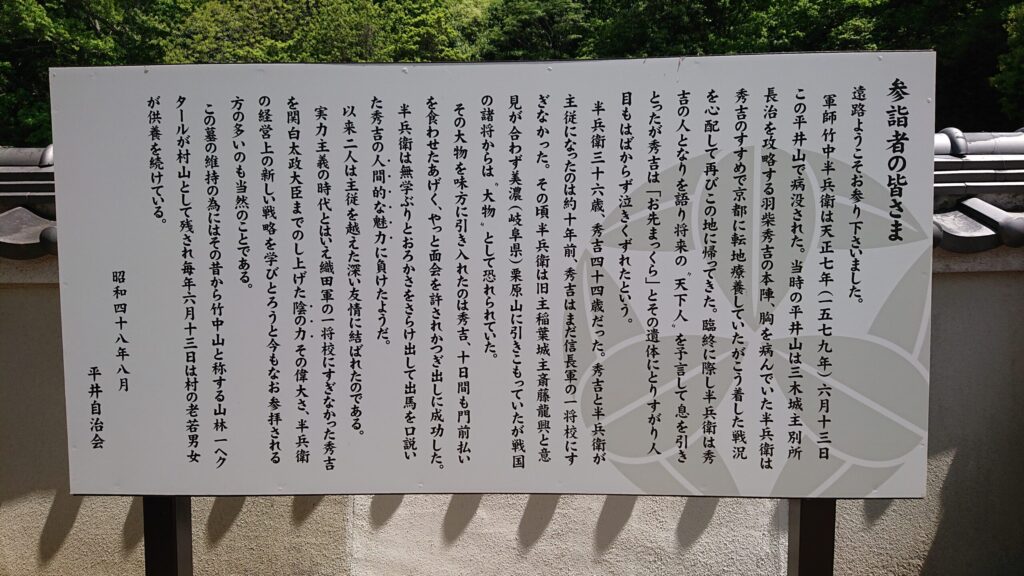 参詣者の皆さま
遠路ようこそお参り下さいました。
軍師竹中半兵衛は天正七年（一五七九年）六月十三日
この平井山で病没された。当時の平井山は三木城主別所
長治を攻略する羽柴秀吉の本陣、胸を病んでいた半兵衛は
秀吉のすすめで京都に転地療養していたがこう着した戦況
を心配して再びこの地に帰ってきた。臨終に際し半兵衛は秀
吉の人となりを語り将来の〝天下人〟を予言して息を引き
とったが秀吉は「お先まっくら」とその遺体にとりすがり人
目もはばからず泣きくずれたという。
半兵衛三十六歳、秀吉四十四歳だった。秀吉と半兵衛が
主従になったのは約十年前、秀吉はまだ信長軍の一将校にす
ぎなかった。その頃半兵衛は旧主稲葉城主斎藤龍興と意
見が合わず美濃（岐阜県）栗原山に引きこもっていたが戦国
の諸将からは〝大物〟として恐れられていた。
その大物を味方に引き入れたのは秀吉、十日間も門前払い
を食わせたあげく、やっと面会を許されかつぎ出しに成功した。
半兵衛は無学ぶりとおろかさをさらけ出して出馬を口説い
た秀吉の人間的な魅力に負けたようだ。
以来二人は主従を越えた深い友情に結ばれたのである。
実力主義の時代とはいえ織田軍の一将校にすぎなかった秀吉
を関白太政大臣までのし上げた陰の力その偉大さ、半兵衛
の経営上の新しい戦略を学びとろうと今もなお参拝される
方の多いのも当然のことである。
この墓の維持の為にはその昔から竹中山と称する山林一ヘク
タールが村山として残され毎年六月十三日は村の老若男女
が供養を続けている。
昭和四十八年八月
平井自治会